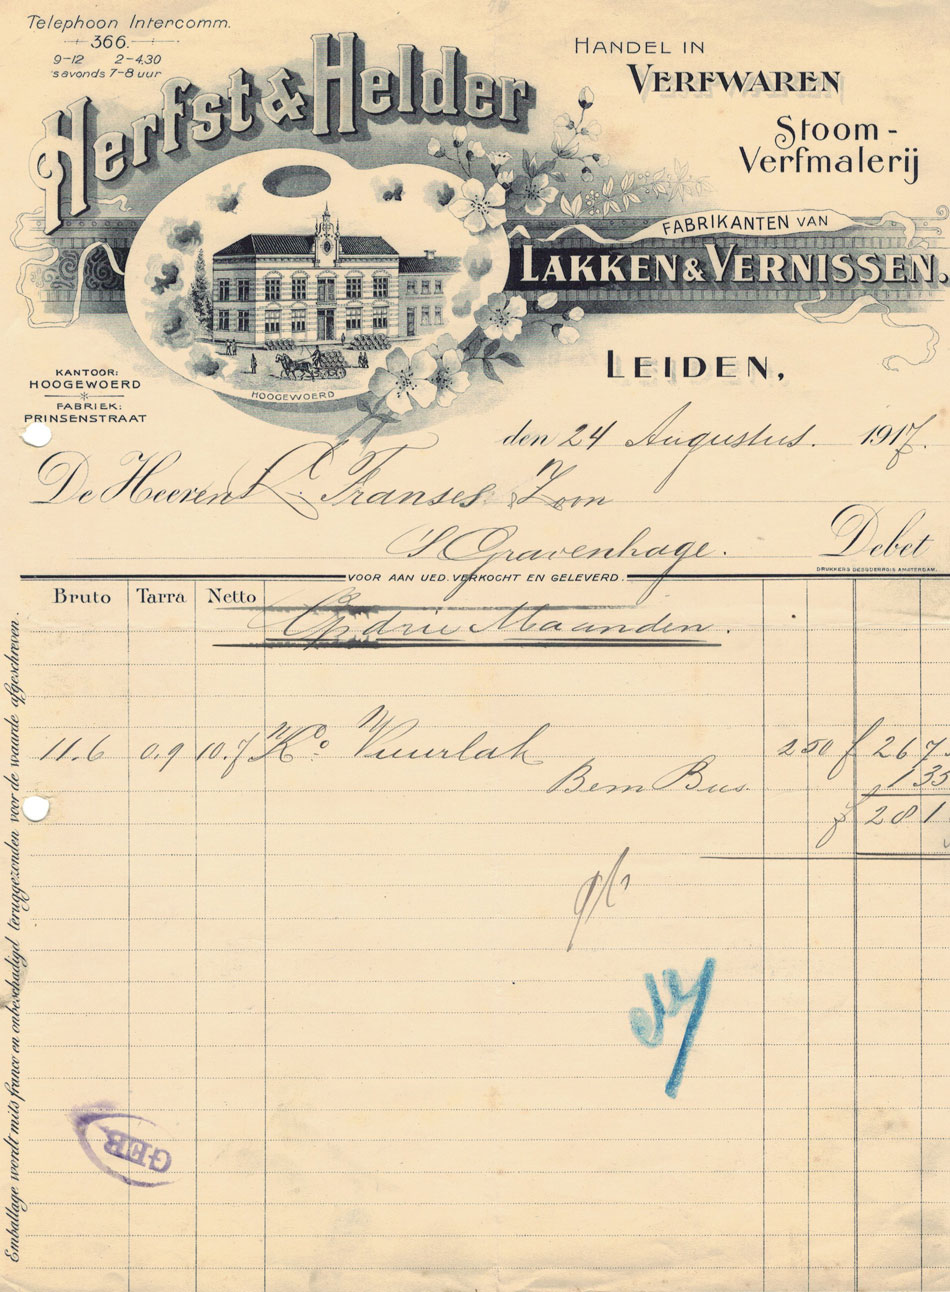 Telephoon Intercomm.
366.
9-12 2-4.30
's avonds 7-8 uur
Herfst & Helder
HANDEL IN
VERFWAREN
Stoom-
Verfmalerij
FABRIKANTEN VAN
LAKKEN & VERNISSEN,
HOOGEWOERD
KANTOOR:
HOOGEWOERD
FABRIEK:
PRINSENSTRAAT
LEIDEN,
den 24 Augustus. 1917.
De Heeren L. Franses & Zoon
's Gravenhage.
Debet
VOOR AAN UED. VERKOCHT EN GELEVERD.
Bruto Tarra Netto
Op drie Maanden.
11.6 0.9 10.7 Ko Vuurlak 250 f 267
Bem Bus. 135
f 281
GEB
Emballage wordt mits franco en onbeschadigd teruggezonden voor de waarde afgeschreven.